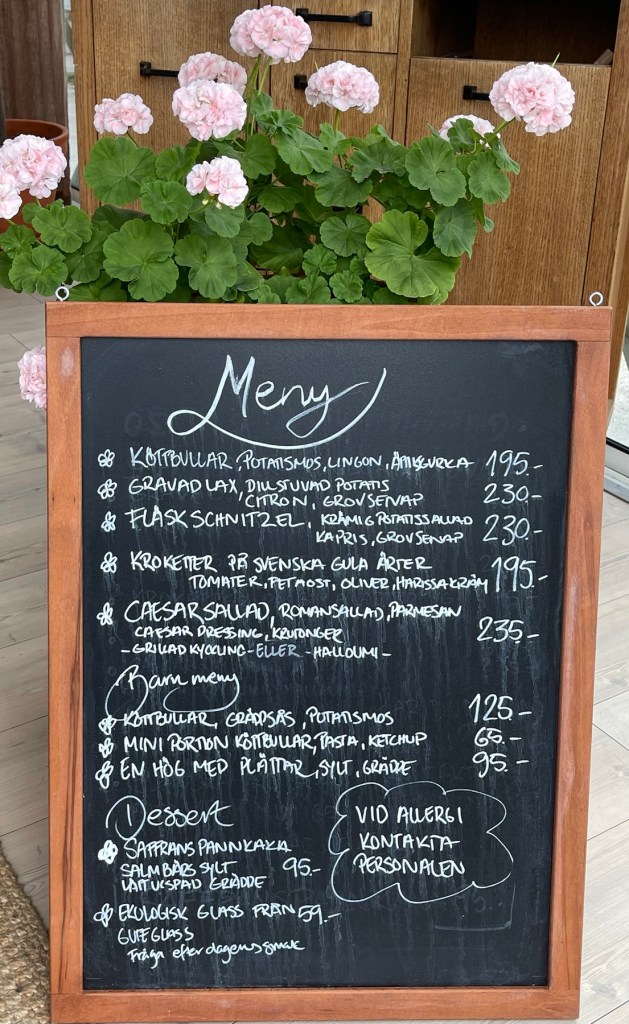 Meny
KÖTTBULLAR, POTATISMOS, LINGON, ÄTTIKSGURKA 195.-
GRAVAD LAX, DILLSTUVAD POTATIS
CITRON, GROVSENAP 230.-
FLÄSKSCHNITZEL, KRÄMIG POTATISSALLAD
KAPRIS, GROVSENAP 230.-
KROKETTER PÅ SVENSKA GULA ÄRTER
TOMATER, FETAOST, OLIVER, HARISSAKRÄM 195.-
CAESARSALLAD, ROMANSALLAD, PARMESAN
CAESAR DRESSING, KRUTONGER 235.-
-GRILLAD KYCKLING- ELLER -HALLOUMI-
Barnmeny
KÖTTBULLAR, GRÄDDSÅS, POTATISMOS 125.-
MINI PORTION KÖTTBULLAR, PASTA, KETCHUP 65.-
EN HÖG MED PLÄTTAR, SYLT, GRÄDDE 95.-
Dessert
SAFFRANSPANNKAKA
SALMBÄRS SYLT 95.-
LÄTTVISPAD GRÄDDE
EKOLOGISK GLASS FRÅN 59.-
GUTEGLASS
Fråga efter dagens smak
VID ALLERGI
KONTAKTA
PERSONALEN